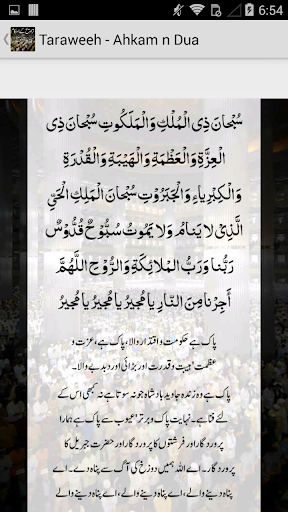 6:54
Taraweeh - Ahkam n Dua
سُبْحَانَ ذِي الْمُلْكِ وَالْمَلَكُوتِ سُبْحَانَ ذِي
الْعِزَّةِ وَالْعَظَمَةِ وَالْهَيْبَةِ وَالْقُدْرَةِ
وَالْكِبْرِيَاءِ وَالْجَبَرُوتِ سُبْحَانَ الْمَلِكِ الْحَيِّ
الَّذِيْ لَا يَنَامُ وَلَا يَمُوتُ سُبُّوحٌ قُدُّوْسٌ
رَبُّنَا وَرَبُّ الْمَلَائِكَةِ وَالرُّوْحِ اللَّهُمَّ
أَجِرْنَا مِنَ النَّارِ يَا مُجِيرُ يَا مُجِيرُ يَا مُجِيرُ
پاک ہے حکومت و اقتدار والا، پاک ہے، عزت و
عظمت ہیبت و قدرت اور بڑائی اور دبدبے والا۔
پاک ہے وہ زندہ جاوید بادشاہ جو نہ سوتا ہے نہ کبھی اس کے
لئے فنا ہے۔ نہایت پاک و برتر از عیوب سے پاک ہے ہمارا
پروردگار اور فرشتوں کا پروردگار اور حضرت جبریل کا
پروردگار۔ اے اللہ ہمیں دوزخ کی آگ سے پناہ دے۔ اے
پناہ دینے والے، اے پناہ دینے والے، اے پناہ دینے والے